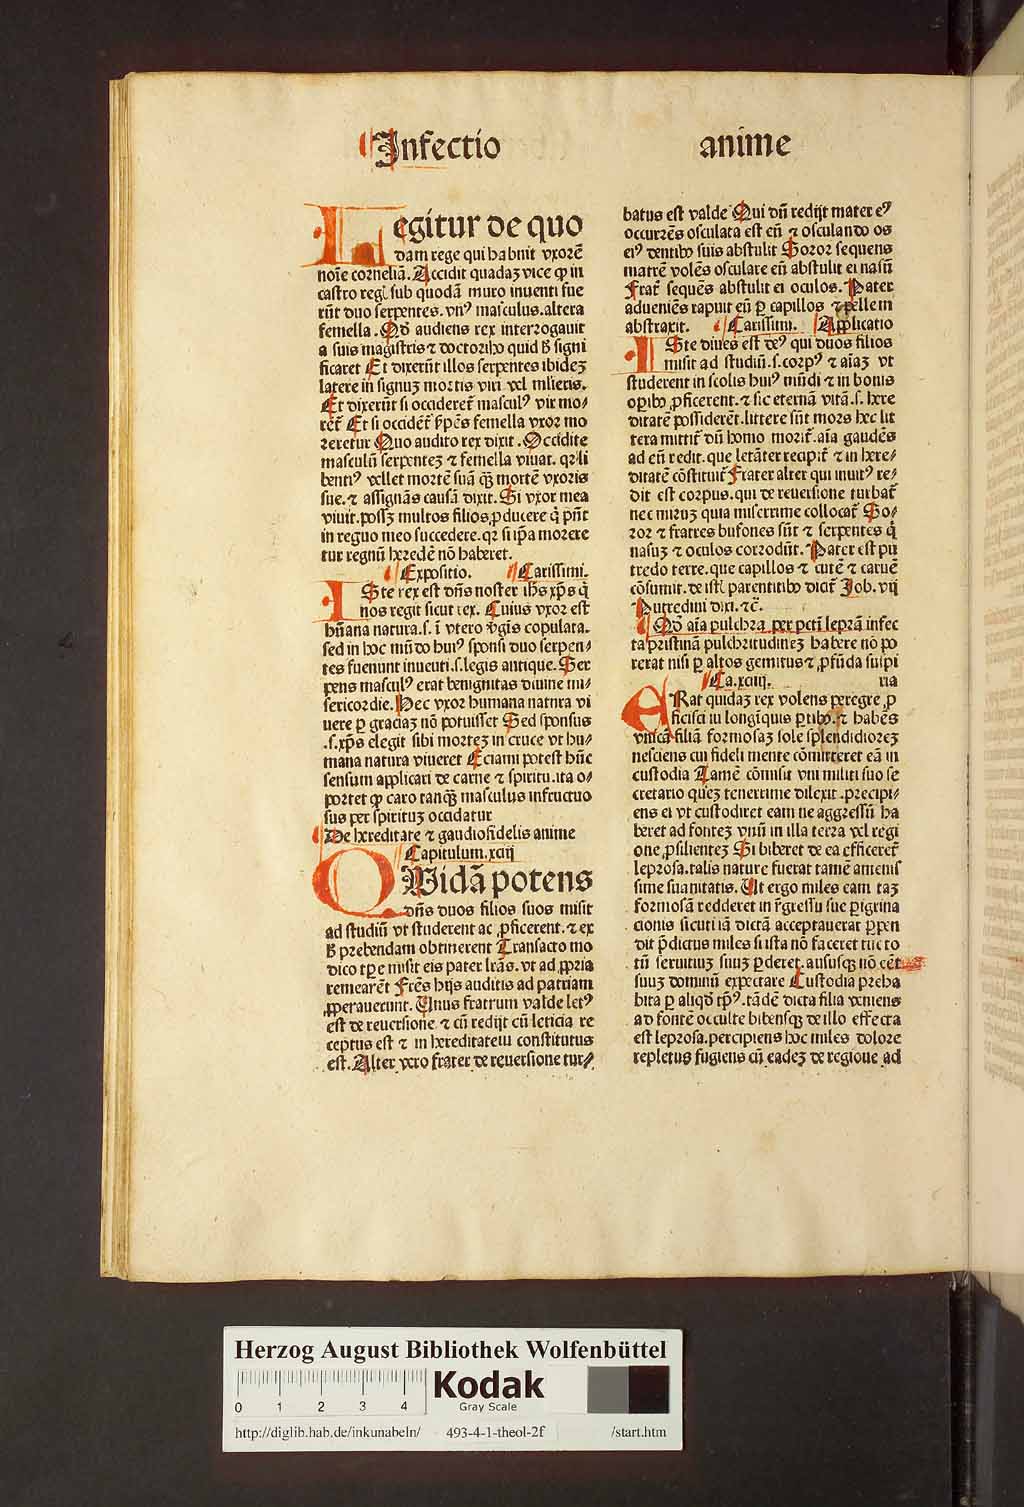 Infectio anime
Legitur de quo
dam rege qui habuit vxorē
noīe corneliā. Accidit quadaꝫ vice ꝙ in
castro regꝭ sub quodā muro inuenti fue
rūt duo serpentes. vnꝰ masculus. altera
femella. Qḋ audiens rex interrogauit
a suis magistris ⁊ doctoribꝰ quid ħ signi
ficaret Et dixerūt illos serpentes ibideꝫ
latere in signuꝫ mortis viri vel mlieris.
Et dixerūt si occidereᷓt masculꝰ vir mo-
reᷓt Et si occideᷓt p̄pēs femella vxor mo
reretur Quo audito rex dixit. Occidite
masculū serpenteꝫ ⁊ femella viuat. qꝛ li
bentiꝰ vellet mortē suā qᷓꝫ mortē vxoris
sue. ⁊ assignās causā dixit. Si vxor mea
viuit. possꝫ multos filios ꝓducere q̇ p̄nt
in reguo meo succedere. qꝛ si ip̄a morere
tur regnū heredē nō haberet.
Expositio. Carissimi.
ISte rex est dn̄s noster ihs xp̄s q̇
nos regit sicut rex. Cuius vxor est
hūana natura. s. ī vtero v̓gīs copulata.
sed in hoc mūdo huiꝰ sponsi duo serpen-
tes fuerunt inueuti. s. legis antique. Ser
pens masculꝰ erat benignitas diuine mi-
sericordie. Hec vxor humana natura vi
uere ꝑ graciaꝫ nō potuisset Sed sponsus
.s. xp̄s elegit sibi morteꝫ in cruce vt hu-
mana natura viueret Eciam potest hūc
sensum applicari de carne ⁊ spiritu. ita o-
portet ꝙ caro tanqᷓꝫ masculus infructuo
sus per spirituꝫ occidatur
De hereditate ⁊ gaudio fidelis anime
Capitulum. xciij
QVidā potens
dn̄s duos filios suos misit
ad studiū vt studerent ac ꝓficerent. ⁊ ex
ħ prebendam obtinerent Transacto mo
dico tꝑe misit eis pater lr̄as. vt ad ꝓpria
remearēt Frēs hijs auditis ad patriam
ꝓperauerunt. Vnus fratrum valde letꝰ
est de reuersione ⁊ cū redijt cū leticia re
ceptus est ⁊ in hereditatem constitutus
est. Alter vero frater de reuersione tur-
batus est valde Qui dū redijt mater eꝰ
occurrēs osculata est eū ⁊ osculando os
eiꝰ dentibꝰ suis abstulit Soror sequens
matrē volēs osculare eū abstulit ei nasū
Fraᷓt sequēs abstulit ei oculos. Pater
adueniēs rapuit eū ꝑ capillos ⁊ pellem
abstraxit. Carissimi. Applicatio
ISte diues est deꝰ qui duos filios
misit ad studiū. s. corpꝰ ⁊ aīaꝫ vt
studerent in scolis huiꝰ mūdi ⁊ in bonis
oꝑibꝰ ꝓficerent. ⁊ sic eternā vitā. s. here
ditatē possiderēt. littere sūt mors hec lit
tera mittit̄ dū homo morit̄. aīa gaudēs
ad eū redit. que letāter recipit̄ ⁊ in here-
ditatē cōstituit̄ Frater alter qui inuitꝰ re-
dit est corpus. qui de reuersione turbat̄
nec miruꝫ quia miserrime collocat̄ So-
ror ⁊ fratres bufones sūt ⁊ serpentes q̇
nasuꝫ ⁊ oculos corrodūt. Pater est pu
tredo terre. que capillos ⁊ cutē ⁊ carnē
cōsumit. de istꝭ parentibꝰ dicit̄ Job. vij
Putredini dixi. ⁊c̄.
Qḋ aīa pulchra per pctī leprā infec
ta pristinā pulchritudineꝫ habere nō po
terat nisi ꝑ altos gemitus ⁊ ꝓfūda suspi
Ca. xciiij. ria
ERat quidaꝫ rex volens peregre ꝓ
ficisci iu longīquis ꝑtibꝰ. ⁊ habēs
vnicā filiā formosaꝫ sole splendidioreꝫ
nesciens cui fideli mente cōmitteret eā in
custodia Tamē cōmisit vni militi suo se
cretario queꝫ tenerrime dilexit. precipi-
ens ei vt custodiret eam ne aggressū ha
beret ad fonteꝫ vnū in illa terra vel regi
one ꝓsilienteꝫ Si biberet de ea efficereᷓt
leprosa. talis nature fuerat tamē amenis
sime suauitatis. Vt ergo miles eam taꝫ
formosā redderet in r̄gressu sue ꝑigrina
cionis sicuti iā dictā acceptauerat ꝑpen
dit p̄dictus miles si ista nō faceret tuc to
tū seruitiuꝫ suuꝫ ꝑderet. aususqꝫ nō cēt
suuꝫ dominū expectare Custodia preha
bita ꝑ aliqḋ tp̄ꝰ. tādē dicta filia veniens
ad fontē occulte bibensqꝫ de illo effecta
est leprosa. percipiens hoc miles dolore
repletus fugiens cū eadeꝫ de regioue ad
Herzog August Bibliothek Wolfenbüttel
0 1 2 3 4
Kodak
Gray Scale
http://diglib.hab.de/inkunabeln/ 493-4-1-theol-2f /start.htm